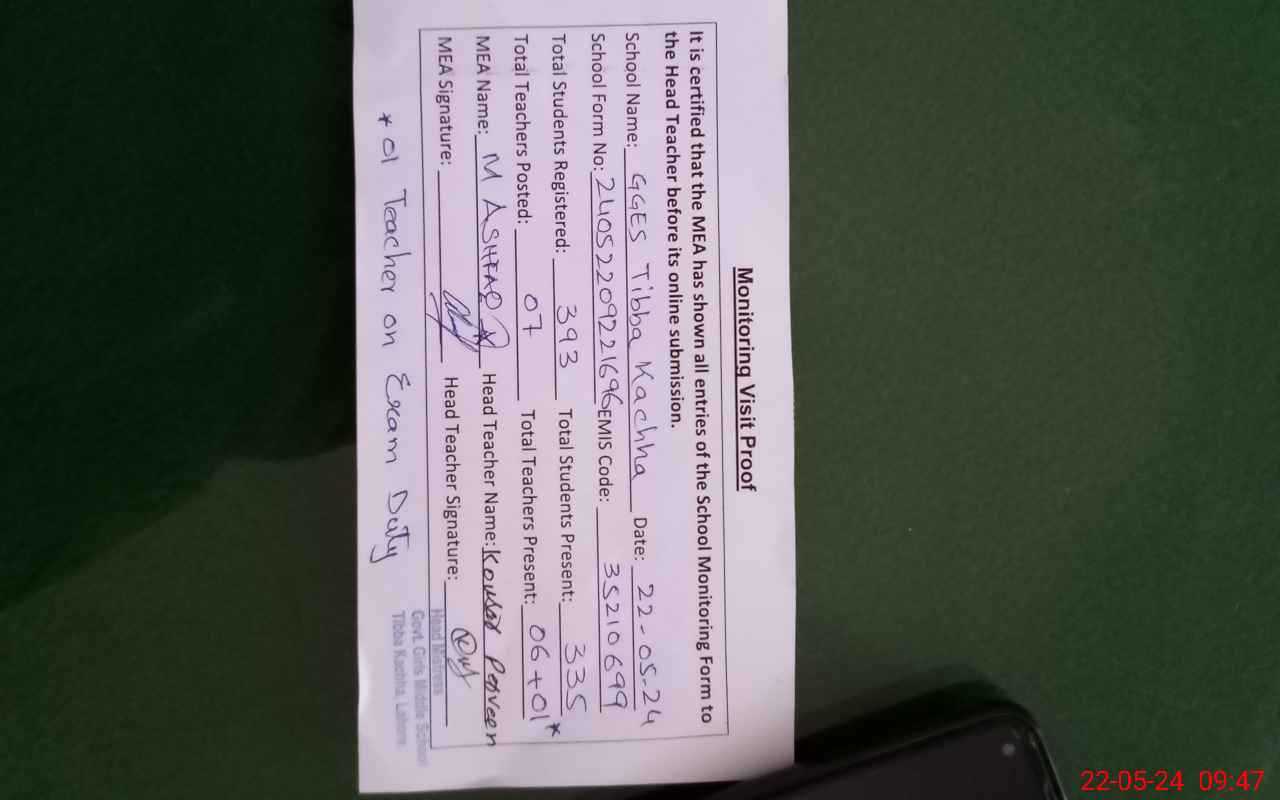 Monitoring Visit Proof
It is certified that the MEA has shown all entries of the School Monitoring Form to
the Head Teacher before its online submission.
School Name: GGES Tibba Kachha Date: 22-05-24
School Form No: 24052209221696 EMIS Code: 35210699
Total Students Registered: 393 Total Students Present: 335
Total Teachers Posted: 07 Total Teachers Present: 06+01*
MEA Name: M ASHFAQ Head Teacher Name: Kousar Parveen
MEA Signature: Head Teacher Signature:
Head Mistress
Govt. Girls Middle School
Tibba Kachha, Lahore
* 01 Teacher on Exam Duty
22-05-24 09:47